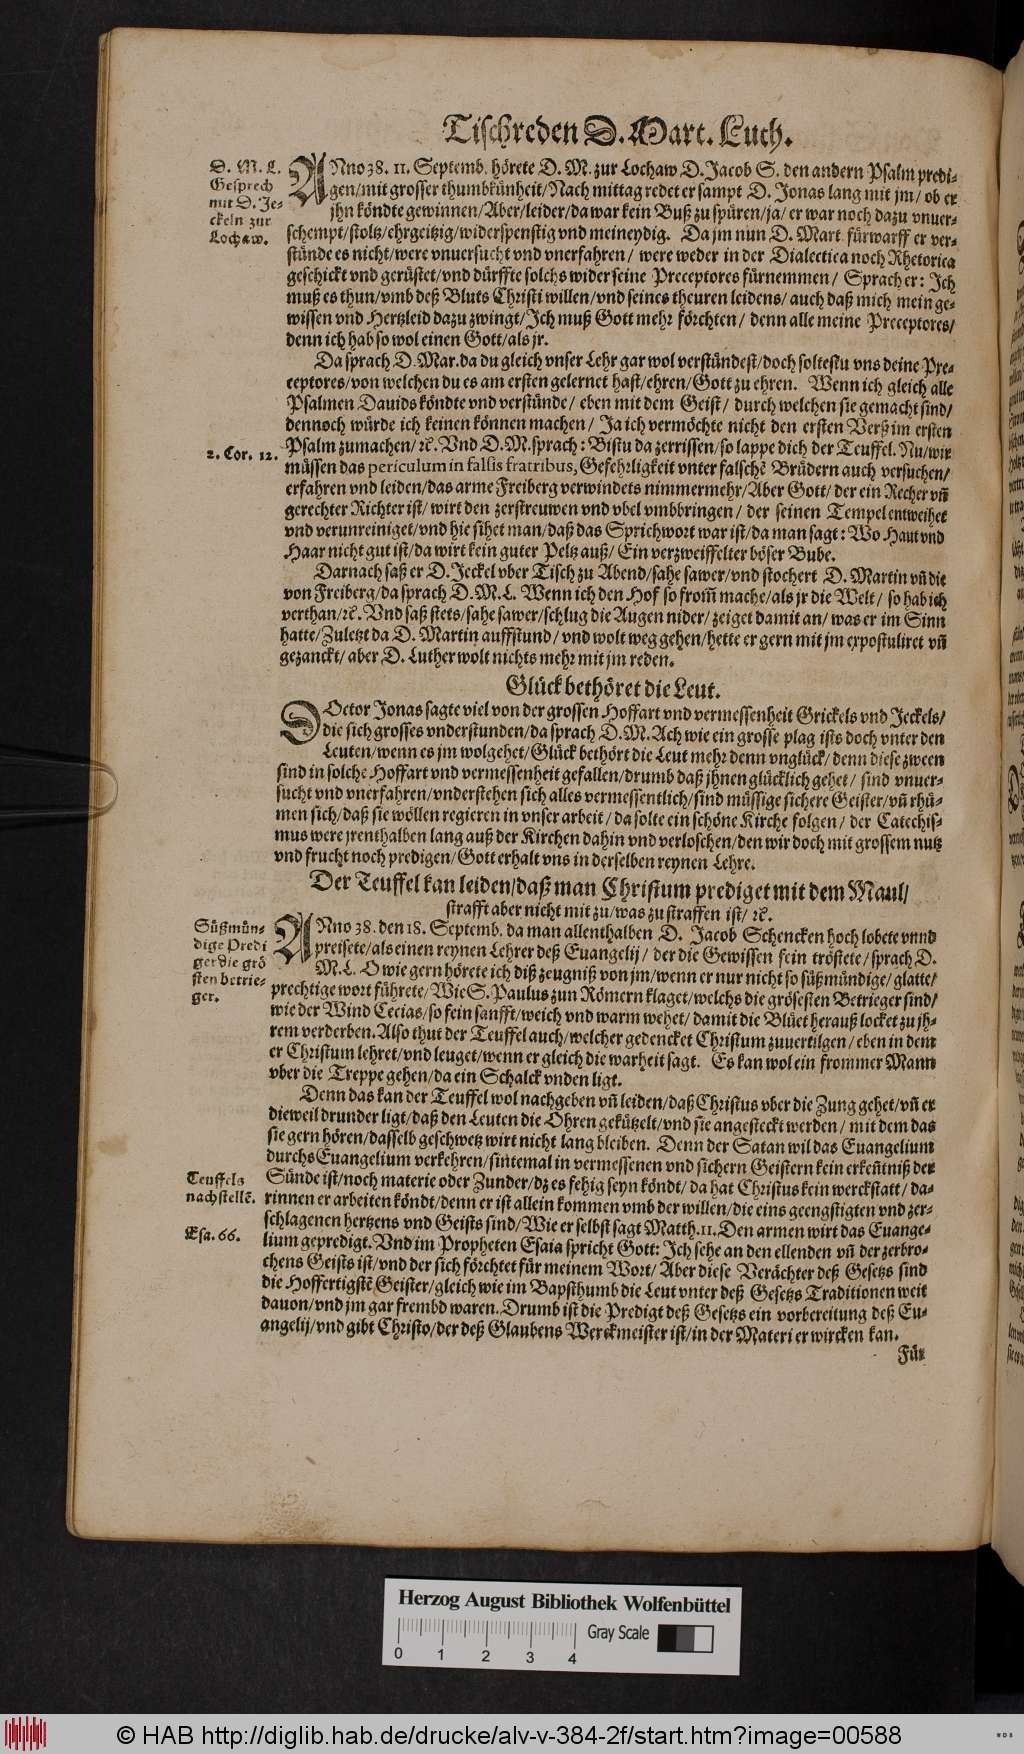 Tischreden D. Mart. Luth.
D. M. L.
Gesprech
mit D. Je-
ckeln zur
Lochaw.
ANno 38. 11. Septemb. hörete D. M. zur Lochaw D. Jacob S. den andern Psalm predi-
gen/mit grosser thumbkünheit/Nach mittag redet er sampt D. Jonas lang mit jm/ ob er
jhn köndte gewinnen/Aber/leider/da war kein Buß zu spüren/ja/ er war noch dazu vnuer-
schempt/stoltz/ehrgeitzig/widerspenstig vnd meineydig. Da jm nun D. Mart. fürwarff er ver-
stünde es nicht/were vnuersucht vnd vnerfahren/ were weder in der Dialectica noch Rhetorica
geschickt vnd gerüstet/vnd dürffte solchs wider seine Preceptores fürnemmen/ Sprach er: Ich
muß es thun/vmb deß Bluts Christi willen/vnd seines theuren leidens/ auch daß mich mein ge-
wissen vnd Hertzleid dazu zwingt/Ich muß Gott mehr förchten/ denn alle meine Preceptores/
denn ich hab so wol einen Gott/als jr.
Da sprach D. Mar. da du gleich vnser Lehr gar wol verstündest/doch soltestu vns deine Pre-
ceptores/von welchen du es am ersten gelernet hast/ehren/Gott zu ehren. Wenn ich gleich alle
Psalmen Dauids köndte vnd verstünde/ eben mit dem Geist/ durch welchen sie gemacht sind/
dennoch würde ich keinen können machen/ Ja ich vermöchte nicht den ersten Verß im ersten
Psalm zumachen/ ꝛc. Vnd D. M. sprach: Bistu da zerrissen/so lappe dich der Teuffel. Nu/wir
2. Cor. 12.
müssen das periculum in falsis fratribus, Gefehrligkeit vnter falschē Brüdern auch versuchen/
erfahren vnd leiden/das arme Freiberg verwindets nimmermehr/Aber Gott/ der ein Recher vñ
gerechter Richter ist/ wirt den zerstreuwen vnd vbel vmbbringen/ der seinen Tempel entweihet
vnd verunreiniget/vnd hie sihet man/daß das Sprichwort war ist/da man sagt: Wo Haut vnd
Haar nicht gut ist/da wirt kein guter Peltz auß/ Ein verzweiffelter böser Bube.
Darnach saß er D. Jeckel vber Tisch zu Abend/sahe sawer/vnd stochert D. Martin vñ die
von Freiberg/da sprach D. M. L. Wenn ich den Hof so from̃ mache/als jr die Welt/ so hab ich
verthan/ꝛc. Vnd saß stets/sahe sawer/schlug die Augen nider/ zeiget damit an/ was er im Sinn
hatte/Zuletzt da D. Martin auffstund/ vnd wolt weg gehen/hette er gern mit jm expostuliret vñ
gezanckt/ aber D. Luther wolt nichts mehr mit jm reden.
Glück bethöret die Leut.
DOctor Jonas sagte viel von der grossen Hoffart vnd vermessenheit Grickels vnd Jeckels/
die sich grosses vnderstunden/da sprach D. M. Ach wie ein grosse plag ists doch vnter den
Leuten/wenn es jm wolgehet/Glück bethört die Leut mehr denn vnglück/ denn diese zween
sind in solche Hoffart vnd vermessenheit gefallen/drumb daß jhnen glücklich gehet/ sind vnuer-
sucht vnd vnerfahren/vnderstehen sich alles vermessentlich/sind müssige sichere Geister/vñ rhü-
men sich/daß sie wöllen regieren in vnser arbeit/da solte ein schöne Kirche folgen/ der Catechis-
mus were jrenthalben lang auß der Kirchen dahin vnd verloschen/den wir doch mit grossem nutz
vnd frucht noch predigen/Gott erhalt vns in derselben reynen Lehre.
Der Teuffel kan leiden/daß man Christum prediget mit dem Maul/
strafft aber nicht mit zu/was zu straffen ist/ ꝛc.
Süßmün-
dige Predi
ger die grö
sten betrie-
ger.
ANno 38. den 18. Septemb. da man allenthalben D. Jacob Schencken hoch lobete vnnd
preisete/als einen reynen Lehrer deß Euangelij/ der die Gewissen fein tröstete/ sprach D.
M. L. O wie gern hörete ich diß zeugniß von jm/wenn er nur nicht so süßmündige/ glatte/
prechtige wort führete/ Wie S. Paulus zun Römern klaget/welchs die grösesten Betrieger sind/
wie der Wind Cecias/so fein sanfft/weich vnd warm wehet/ damit die Blüet herauß locket zu jh-
rem verderben. Also thut der Teuffel auch/welcher gedencket Christum zuuertilgen/ eben in dem
er Christum lehret/vnd leuget/wenn er gleich die warheit sagt. Es kan wol ein frommer Mann
vber die Treppe gehen/da ein Schalck vnden ligt.
Denn das kan der Teuffel wol nachgeben vñ leiden/daß Christus vber die Zung gehet/vñ er
dieweil drunder ligt/daß den Leuten die Ohren gekützelt/vnd sie angesteckt werden/ mit dem das
sie gern hören/dasselb geschwetz wirt nicht lang bleiben. Denn der Satan wil das Euangelium
durchs Euangelium verkehren/sintemal in vermessenen vnd sichern Geistern kein erkeñtniß der
Teuffels
nachstellē.
Sünde ist/noch materie oder Zunder/dz es fehig seyn köndt/ da hat Christus kein werckstatt/ da-
rinnen er arbeiten köndt/denn er ist allein kommen vmb der willen/die eins geengstigten vnd zer-
schlagenen hertzens vnd Geists sind/ Wie er selbst sagt Matth. 11. Den armen wirt das Euange-
Esa. 66.
lium gepredigt. Vnd im Propheten Esaia spricht Gott: Ich sehe an den ellenden vñ der zerbro-
chens Geists ist/vnd der sich förchtet für meinem Wort/ Aber diese Verächter deß Gesetzs sind
die Hoffertigstē Geister/gleich wie im Bapsthumb die Leut vnter deß Gesetzs Traditionen weit
dauon/vnd jm gar frembd waren. Drumb ist die Predigt deß Gesetzs ein vorbereitung deß Eu-
angelij/vnd gibt Christo/der deß Glaubens Werckmeister ist/in der Materi er wircken kan.
Für
Herzog August Bibliothek Wolfenbüttel
Gray Scale
0 1 2 3 4
© HAB http://diglib.hab.de/drucke/alv-v-384-2f/start.htm?image=00588